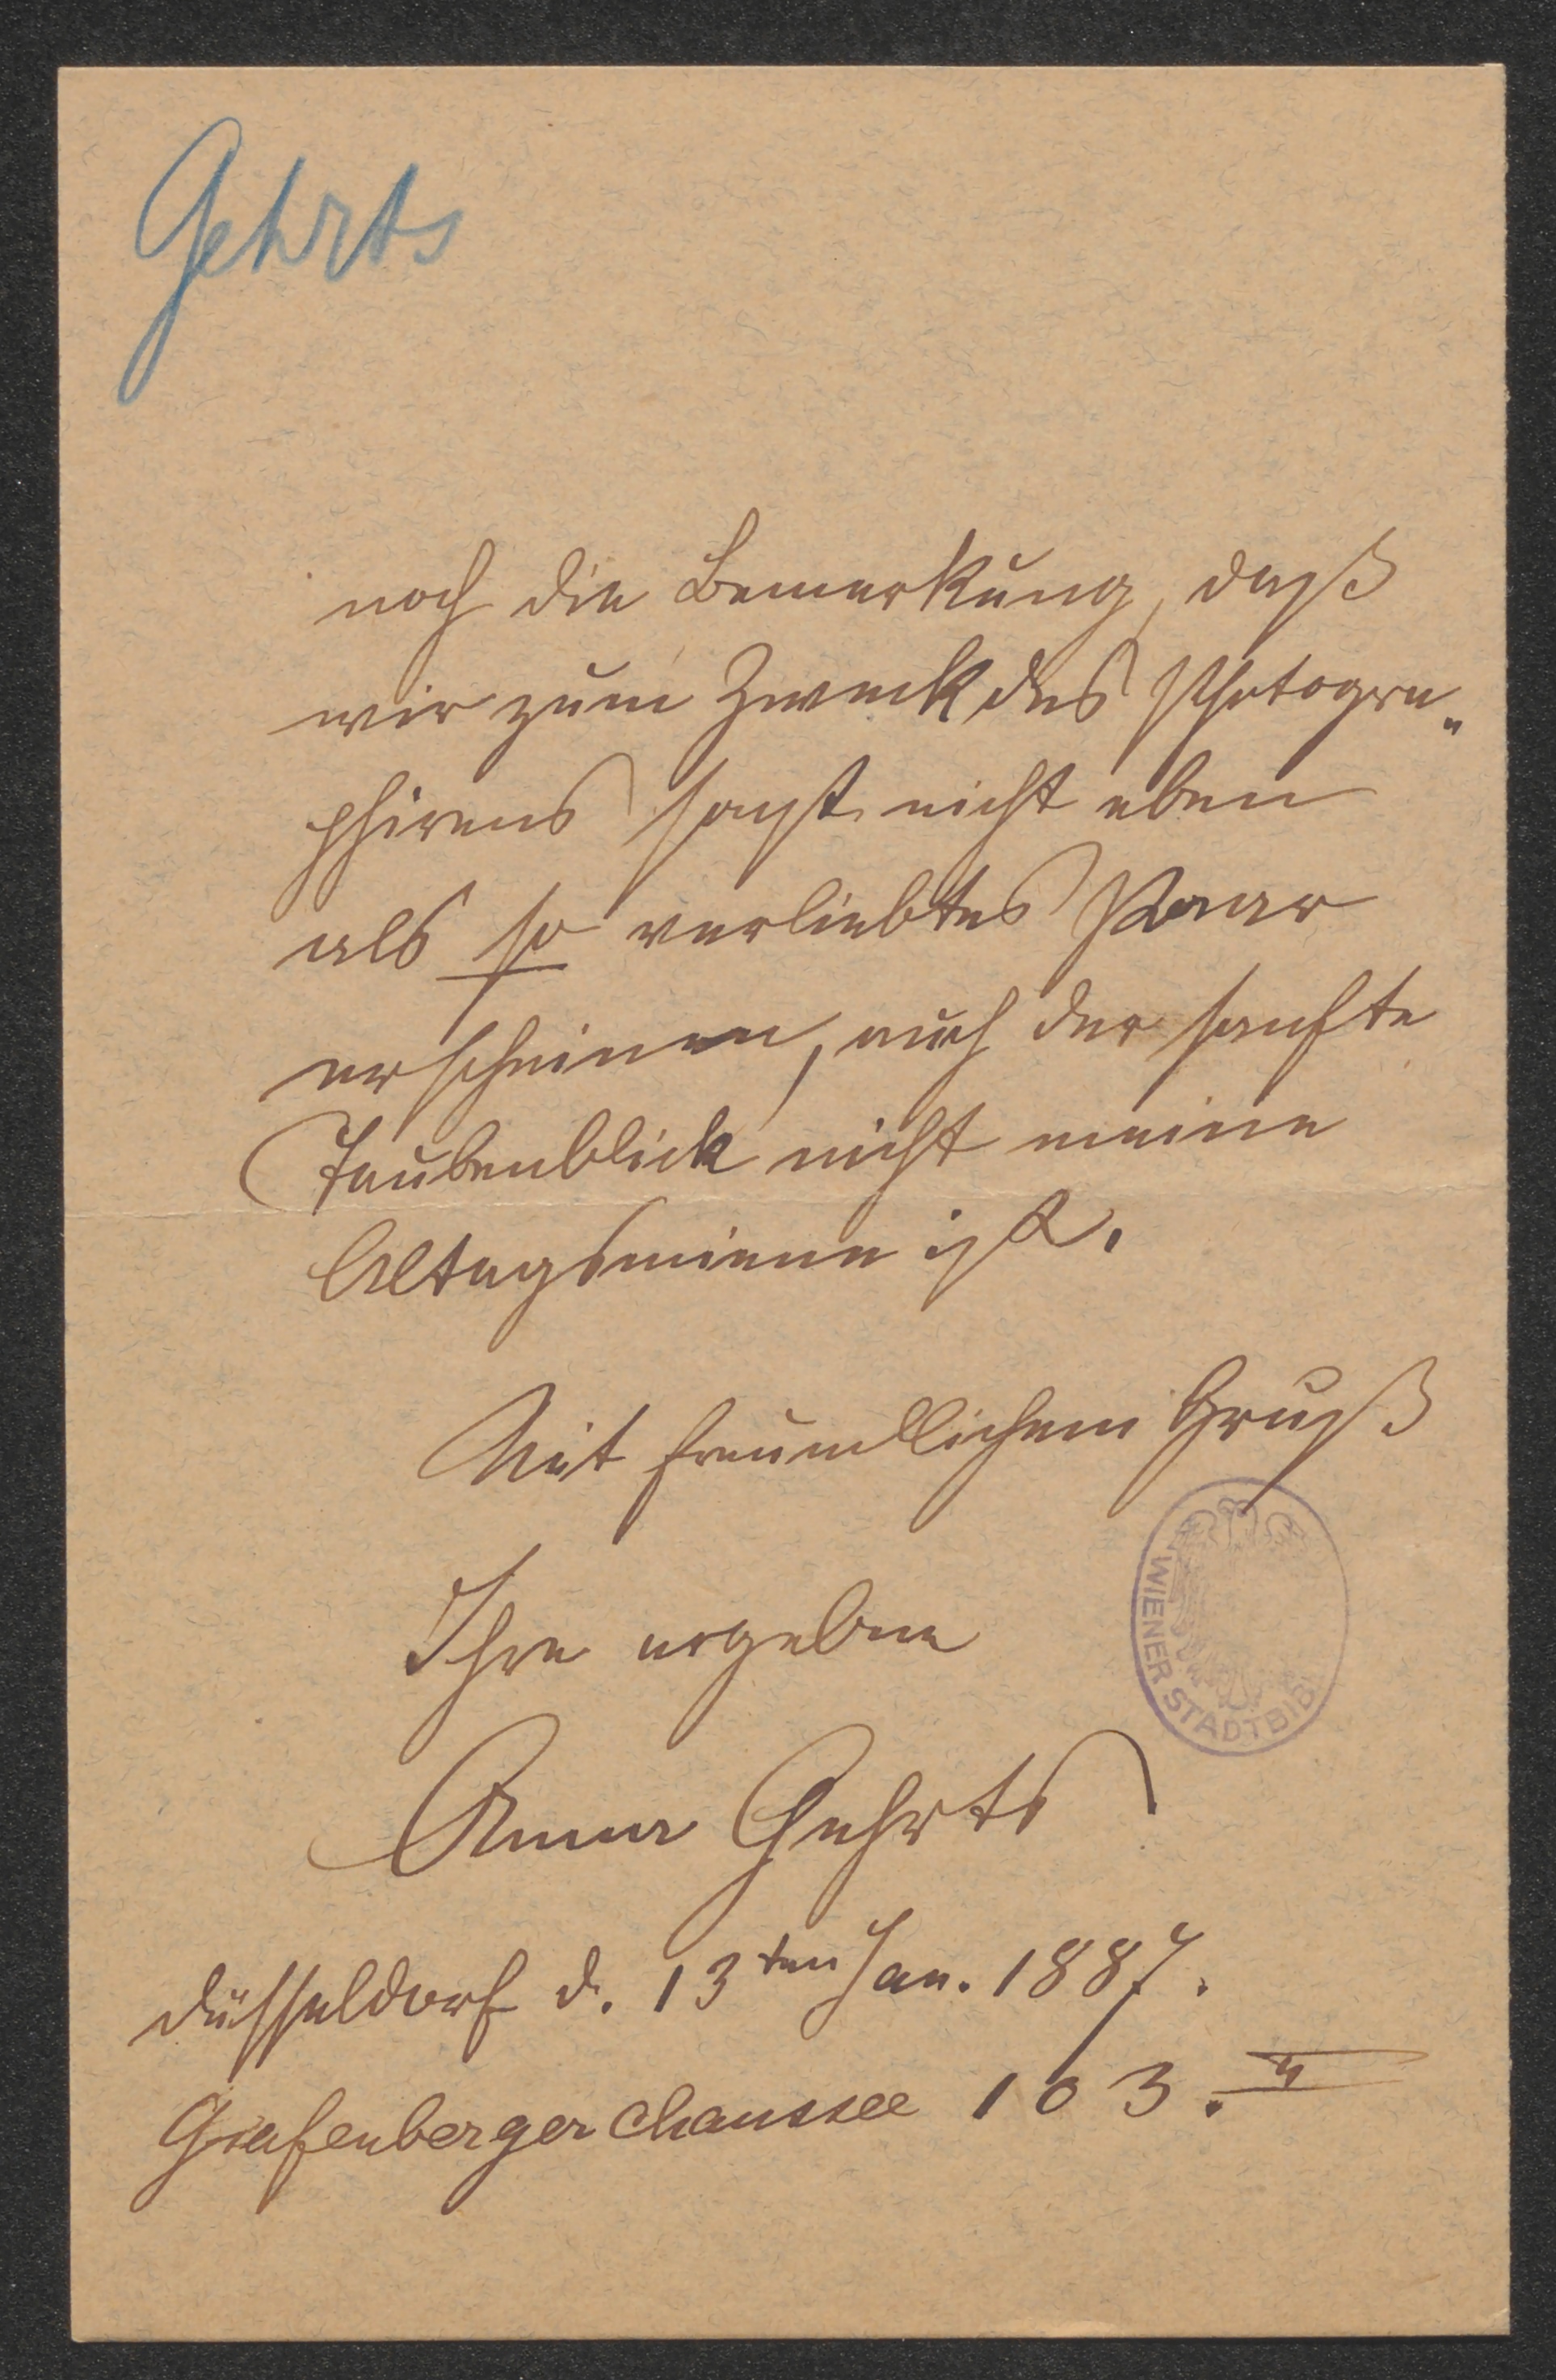 Gehrts
noch die Bemerkung, daß
wir zum Zweck des Photogra„
phirens sonst nicht eben
als so verliebtes Paar
erscheinen, auch der sanfte
Taubenblick nicht meine
Altagsmiene ist.
Mit freundlichem Gruß
Ihre ergebne
Anna Gehrts
Düsseldorf d. 13ten Jan. 1887.
Grafenberger Chaussee 103.
WIENER STADTBIBL